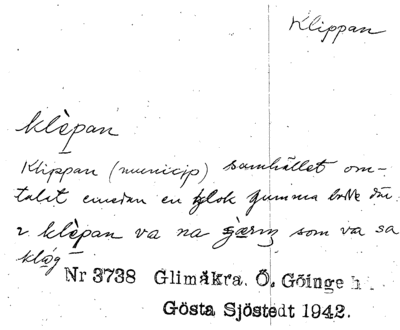 Klippan
klèpan
Klippan (municip) samhället om-
talat emedan en klok gumma bodde där.
i klèpan va na jæriŋ som va sa
klåg
Nr 3738 Glimåkra. Ö. Göinge h
Gösta Sjöstedt 1942.